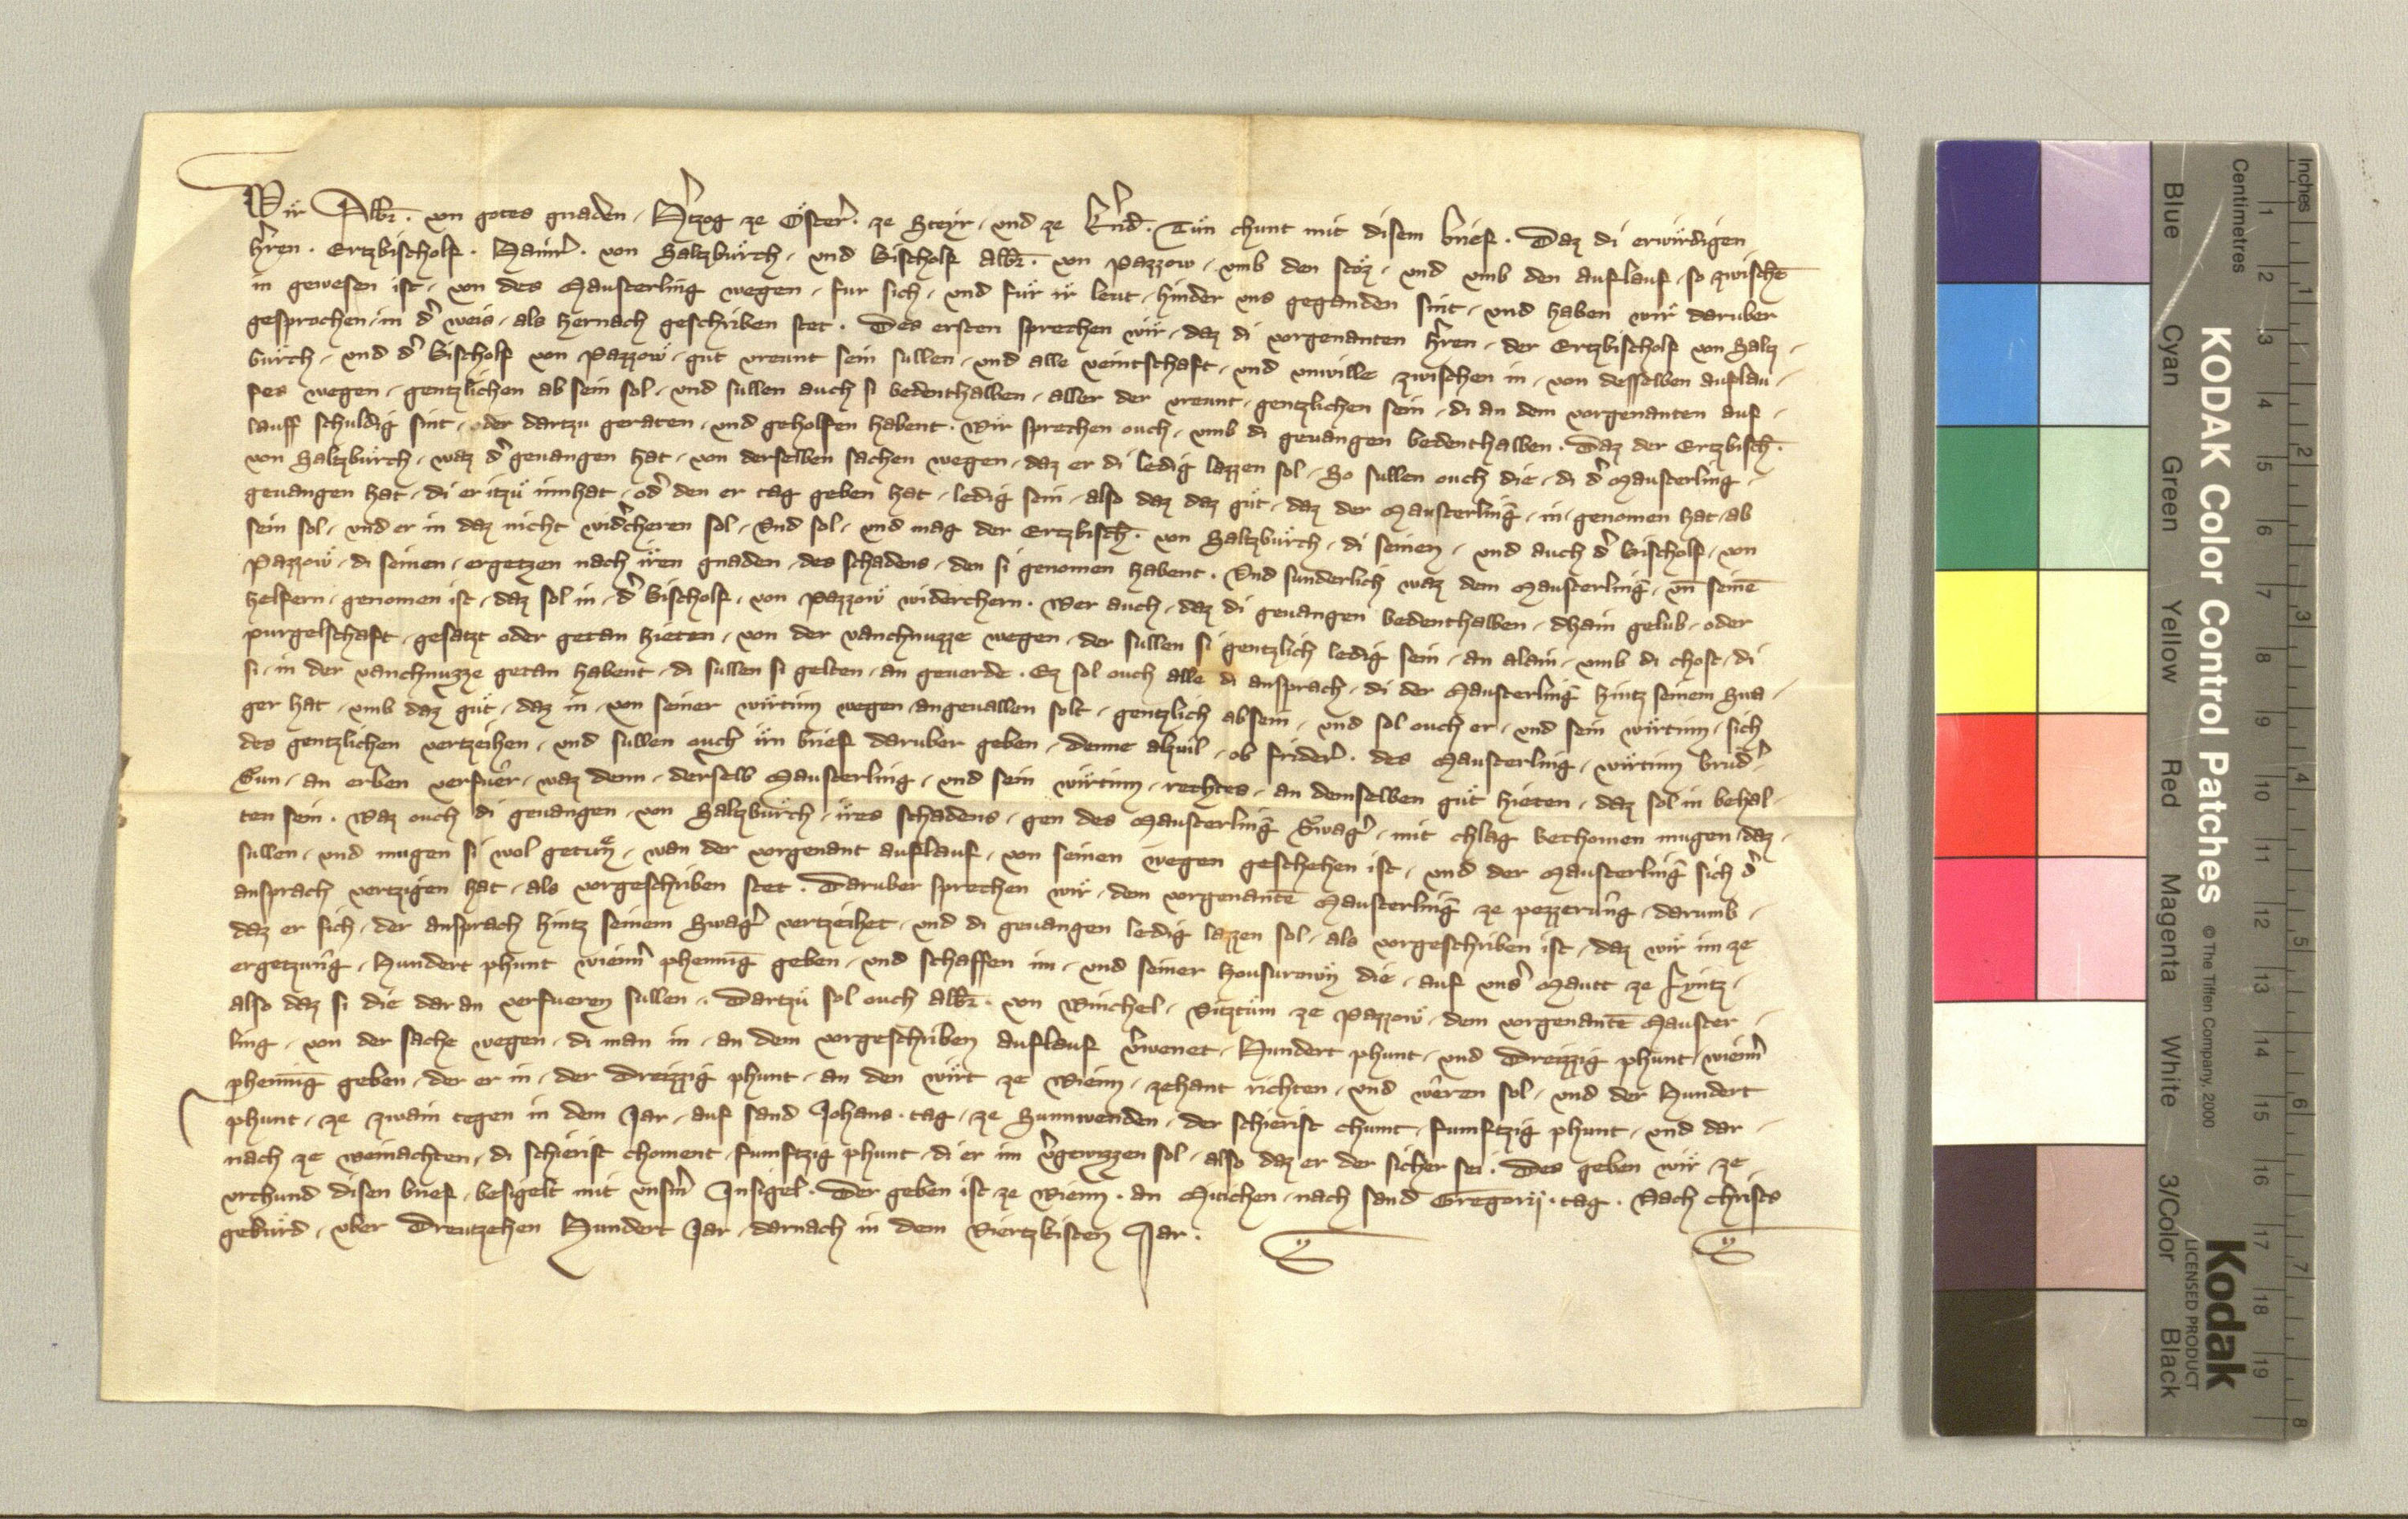 Wir Albr̄. von gotes gnaden, Hͤtzog ze Ôsterˀ. ze Steyr, vnd ze kˀnd̄. Tůn chunt mit disem brief. Daz di erwirdigen
hˀren. Ertzbischolf. Hainrˀ. von Saltzbůrch, vnd Bischolf Albr̄. von Pazzow, vmb den stôz, vnd vmb den auflauf, so zwischē
in gewesen ist, von des Mausterling wegen, fur sich, vnd fůr ir leut, hinder vns geganden sint, vnd haben wir daruber
gesprochen, in dˀ weis, als hernach geschriben stet. Des ersten sprechen wir, daz di vorgenanten hˀren, der Ertzbischolf von Saltz-
bůrch, vnd dˀ Bischolf von Pazzow, gut vreunt sein sullen, vnd alle veintschaft, vnd vnwille zwischen in, von desselben auflau-
fes wegen, gentzlichen ab sein sol, vnd sullen auch si bedenthalben, aller der vreunt, gentzlichen sein, di an dem vorgenanten auf-
lauff schuldig sint, oder dartzu geraten, vnd geholfen habent. Wir sprechen ouch, vmb di geuangen bedenthalben. Daz der Ertzbisch̄.
von Saltzbůrch, waz dˀ geuangen hat, von derselben sachen wegen, daz er di ledig lazzen sol, So sullen ouch die, di dˀ Mausterling,
geuangen hat, di er itzů innhat, odˀ den er tag geben hat, ledig sein, also daz daz gůt, daz der Mausterling, in, genomen hat, ab
sein sol, vnd er in daz nicht widˀcheren sol, Vnd sol, vnd mag der Ertzbisch̄. von Saltzbůrch, di seinen, vnd auch dˀ Bischolf, von
Pazzow, di seinen, ergetzen nach iren gnaden, des schadens, den si genomen habent. Vnd sunderlich waz dem Mausterling, vn̄ seinē
helfern, genomen ist, daz sol in, dˀ Bischolf, von Pazzow widerchern. Wer auch, daz di geuangen bedenthalben, dhain gelub, oder
purgelschaft, gesatzt oder getan hieten, von der vanchnuzze wegen, der sullen si gentzlich ledig sein, an alain, vmb di chost, di
si, in der vanchnuzze getan habent, di sullen si gelten, an geuerde. Ez sol ouch alle di ansprach, di der Mausterling hintz seinem Swa-
ger hat, vmb daz gůt, daz in, von seiner wirtinn wegen, angeuallen solt, gentzlich absein, vnd sol ouch er, vnd sein wirtinn, sich
des gentzlichen vertzeihen, vnd sullen ouch irn brief daruber geben, denne alzuil, ob Fridrˀ. des Mausterling, wirtinn brudˀ
Sun, an erben verfuer, waz denn, derselb Mausterling, vnd sein wirtinn, rechtes, an demselben gůt hieten, daz sol in behal-
ten sein. Waz ouch di geuangen, von Saltzbůrch, ires schadens, gen des Mausterling Swagˀ, mit chlag bechomen mugen, daz,
sullen, vnd mugen si wol getůn, wan der vorgenant auflauf, von seinen wegen geschehen ist, vnd der Mausterling sich dˀ
ansprach vertzigen hat, als vorgeschriben stet. Daruber sprechen wir, dem vorgenantē Mausterling ze pezzerung, darumb,
daz er sich, der ansprach hintz seinem Swagˀ vertzeihet, vnd di geuangen ledig lazzen sol, als vorgeschriben ist, daz wir im ze
ergetzung, Hundert phunt wiennˀ phenning geben, vnd schaffen im, vnd seiner housurowen die, auf vnsˀ Mautt ze
also daz si die daran verfueren sullen. Dartzů sol ouch Albr̄. von Winchel, Vitztům ze Pazzow, dem vorgenantē Mauster-
ling, von der sache wegen, di man in, an dem vorgeschriben auflauf vˀwenet, Hundert phunt, vnd Dreizzig phunt, wiennˀ
phenning geben, der er in, der Dreizzig phunt, an den wirt ze Wienn, zehant richten, vnd weren sol, vnd der Hundert
phunt, ze zwain tegen in dem Jar, auf sand Johans, tag, ze Sunnwenden, der schierist chumt, fumftzig phunt, vnd dar-
nach ze weinachten, di schierist choment, fumftzig phunt, di er im vˀgewizzen sol, also daz er der sicher sei. Des geben wir, ze
vrchund disen brief, besigelt mit vnsˀm Insigel. Der geben ist ze Wienn, an Mitichen, nach sand Gregorij, tag. Nach christs
gebůrd, vber Dreutzehen Hundert Jar, darnach in dem Viertzkisten Jar.
KODAK Color Control Patches © The Tiffen Company, 2000
Kodak
LICENSED PRODUCT
Inches
Centimetres
1 2 3 4 5 6 7 8
1 2 3 4 5 6 7 8 9 10 11 12 13 14 15 16 17 18 19
Blue Cyan Green Yellow Red Magenta White 3/Color Black